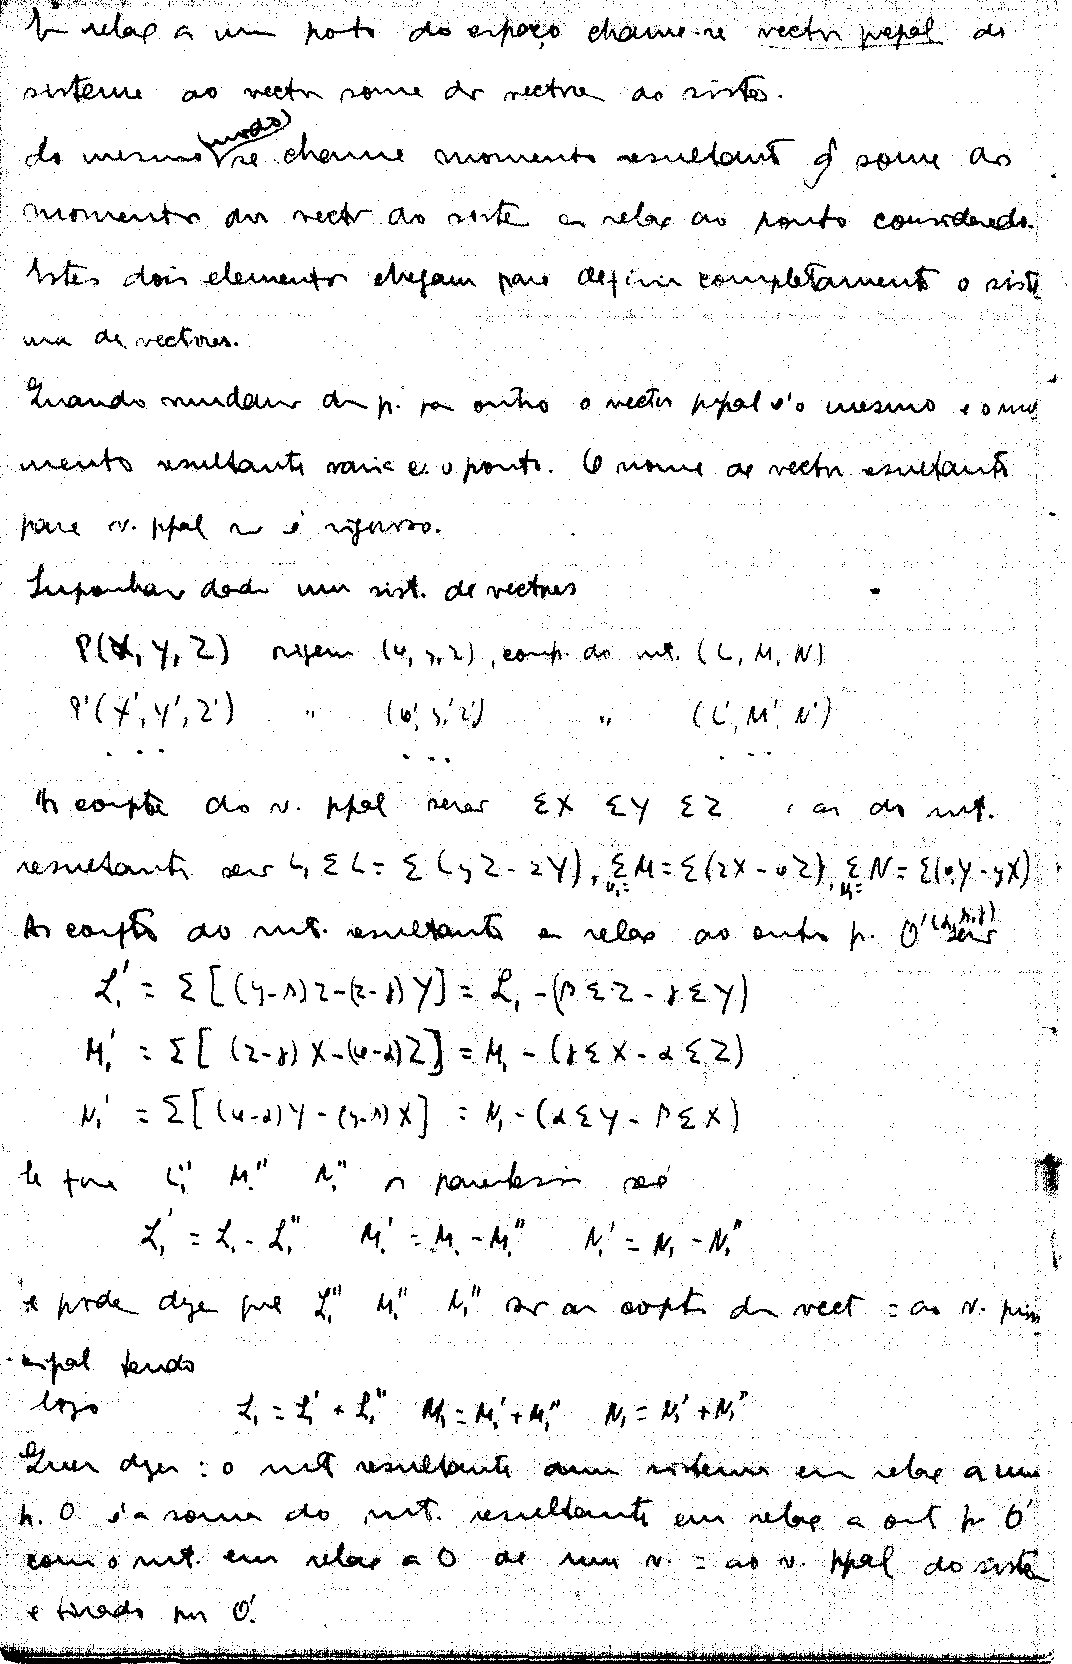 Em relaç a um ponto do espaço chama-se vector ppal do
sistema ao vector soma dos vectores do sistema.
do mesmo modo se chama momento resultante à soma dos
momentos dos vect do siste em relaç ao ponto considerado.
Estes dois elementos chegam para definir completamente o siste
ma de vectores.
Quando mudamos dum p. para outro o vector ppal é o mesmo e o mo
mento resultante varia c. o ponto. O nome de vector resultante
para v. ppal não é rigoroso.
Suponhamos dado um sist. de vectores
P(X, Y, Z) origem (x, y, z), comp. do mt. (L, M, N)
P'(X', Y', Z') " (x', y', z') " (L', M', N')
... ... ...
As compte do v. ppal serão ΣX ΣY ΣZ , as do mt.
resultante ser L₁ ΣL = Σ(yZ - zY), M₁= ΣM = Σ(zX - xZ), N₁= ΣN = Σ(xY - yX)
As comptes do mt. resultante em relaç ao outro p. O'(α, β, γ) serão
L₁' = Σ[(y-β)Z-(z-γ)Y] = L₁ - (βΣZ - γΣY)
M₁' = Σ[(z-γ)X-(x-α)Z] = M₁ - (γΣX - αΣZ)
N₁' = Σ[(x-α)Y-(y-β)X] = N₁ - (αΣY - βΣX)
Se forem L₁" M₁" N₁" os parentesis será
L₁' = L₁ - L₁" M₁' = M₁ - M₁" N₁' = N₁ - N₁"
e pode dizer que L₁" M₁" N₁" são as compts dum vect = ao v. prin
cipal tendo
logo L₁ = L₁' + L₁" M₁ = M₁' + M₁" N₁ = N₁' + N₁"
Quer dizer: o mt resultante dum sistema em relaç a um
p. O é a soma do mt. resultante em relaç a out p O'
com o mt. em relaç a O de um v. = ao v. ppal do siste
e tirado por O'.